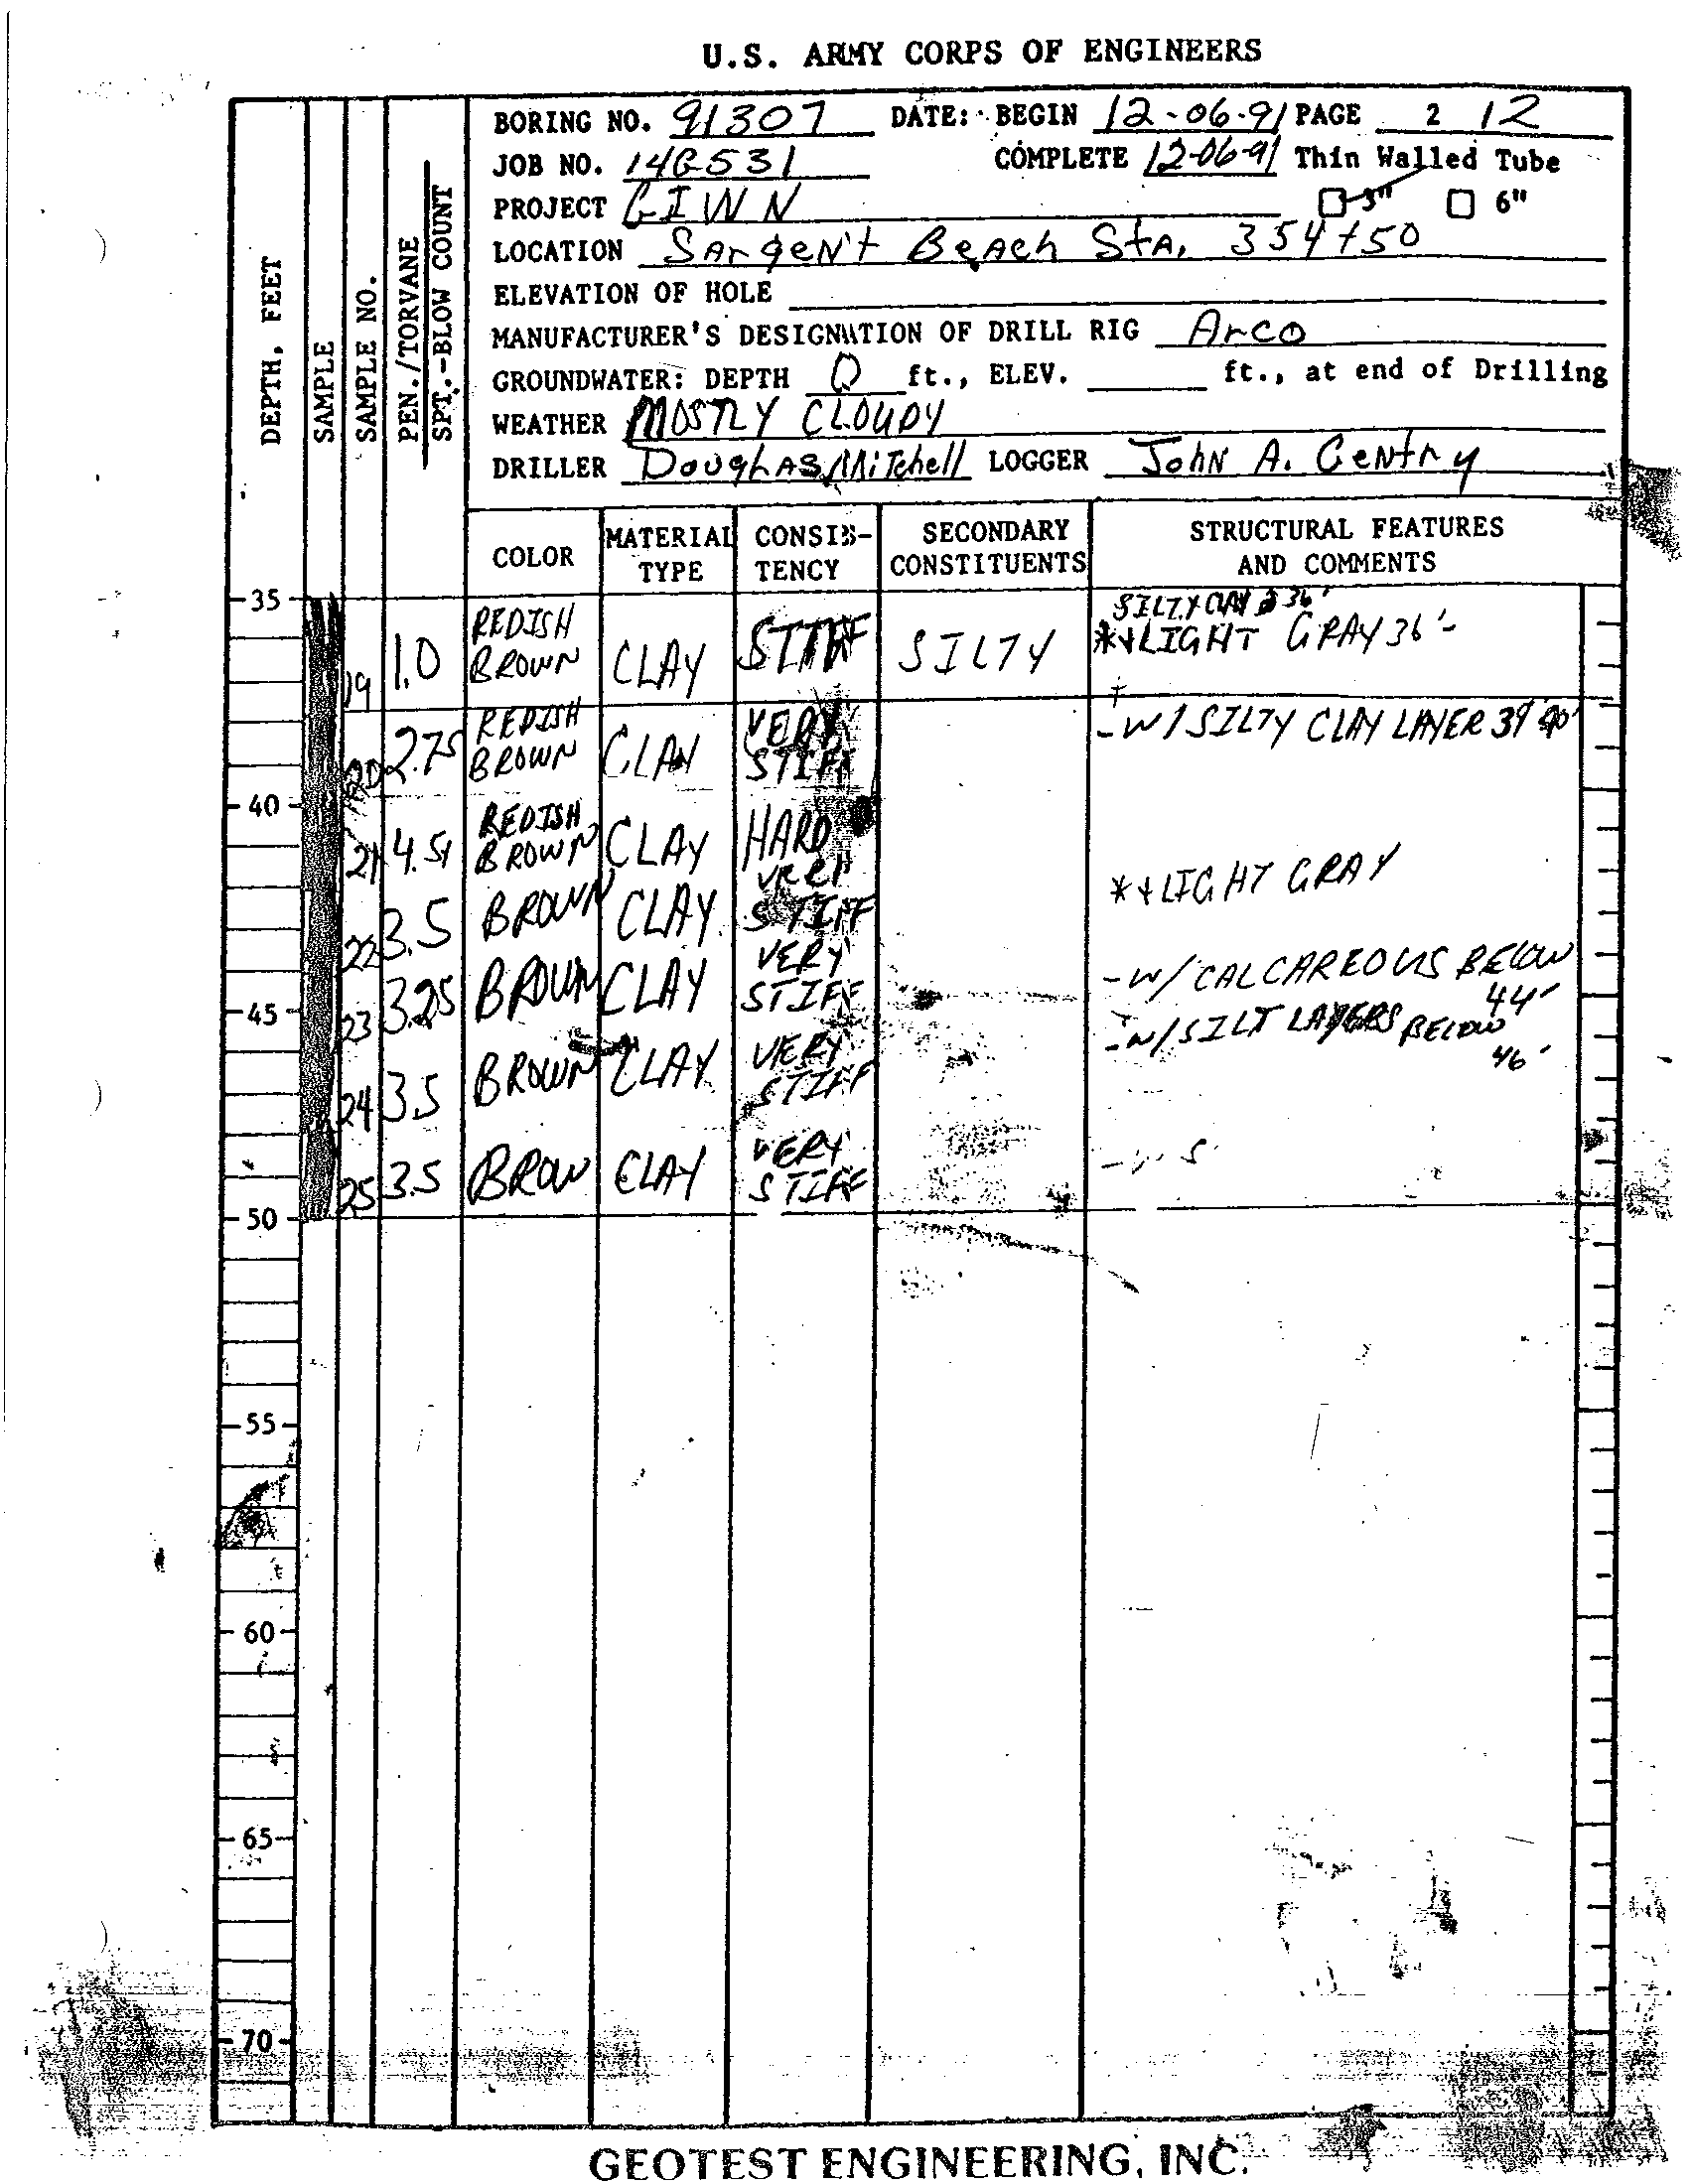 U.S. ARMY CORPS OF ENGINEERS
BORING NO. 91307 DATE: BEGIN 12-06-91 PAGE 2 / 2
JOB NO. 14G531 COMPLETE 12-06-91 Thin Walled Tube
PROJECT GIWN 3" 6"
LOCATION SArgeN't BeAch StA. 354+50
ELEVATION OF HOLE
MANUFACTURER'S DESIGNATION OF DRILL RIG Arco
GROUNDWATER: DEPTH 0 ft., ELEV. ft., at end of Drilling
WEATHER MOSTLY CLOUDY
DRILLER DOUGLAS MiTchell LOGGER JohN A. GeNtry
DEPTH, FEET
SAMPLE
SAMPLE NO.
PEN./TORVANE
SPT.-BLOW COUNT
COLOR MATERIAL TYPE CONSIS-TENCY SECONDARY CONSTITUENTS STRUCTURAL FEATURES AND COMMENTS
35
SILTY CLAY @ 36'
19 1.0 REDISH BROWN CLAY STIFF SILTY LIGHT GRAY 36'-
20 2.75 REDISH BROWN CLAY VERY STIFF -W/SILTY CLAY LAYER 39 40'
40
21 4.5+ REDISH BROWN CLAY HARD
22 3.5 BROWN CLAY VERY STIFF *+LIGHT GRAY
23 3.25 BROWN CLAY VERY STIFF -W/ CALCAREOUS BELOW 44'
45
-W/SILT LAYERS BELOW 46'
24 3.5 BROWN CLAY VERY STIFF
25 3.5 BROW CLAY VERY STIFF
50
55
60
65
70
GEOTEST ENGINEERING, INC.